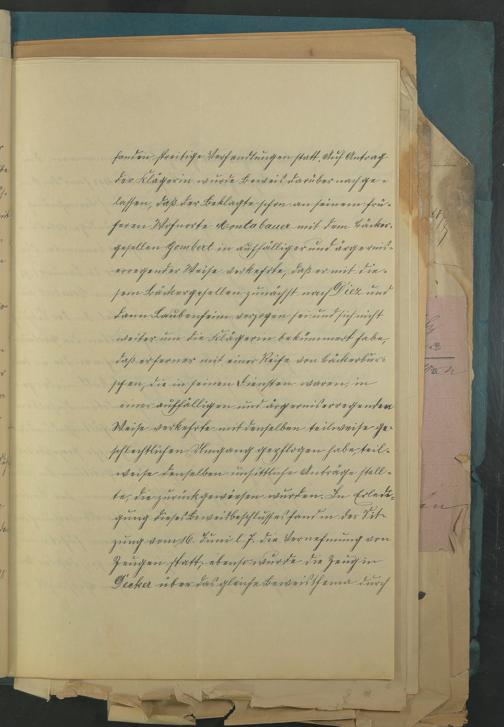 fanden streitige Verhandlungen statt. Auf Antrag
der Klägerin wurde Beweis darüber nachge-
lassen, daß der Beklagte schon an seinem frü-
heren Wohnorte Montabaur mit dem Bäcker-
gesellen Gombert in auffälliger und ärgernis-
erregender Weise verkehrte, daß er mit die-
sem Bäckergesellen zunächst nach Diez und
dann Laubenheim verzogen sei und sich nicht
weiter um die Klägerin bekümmert habe,
daß er ferner mit einer Reihe von Bäckerbur-
schen, die in seinen Diensten waren, in
einer auffälligen und ärgerniserregenden
Weise verkehrte, mit denselben teilweise ge-
schlechtlichen Umgang gepflogen habe, teil-
weise denselben unsittliche Anträge stell-
te, die zurückgewiesen wurden. In Erledi-
gung dieses Beweisbeschlusses fand in der Sit-
zung vom 16. Juni l. J. die Vernehmung von
Zeugen statt, ebenso wurde die Zeugin
Decker über das gleiche Beweisthema durch